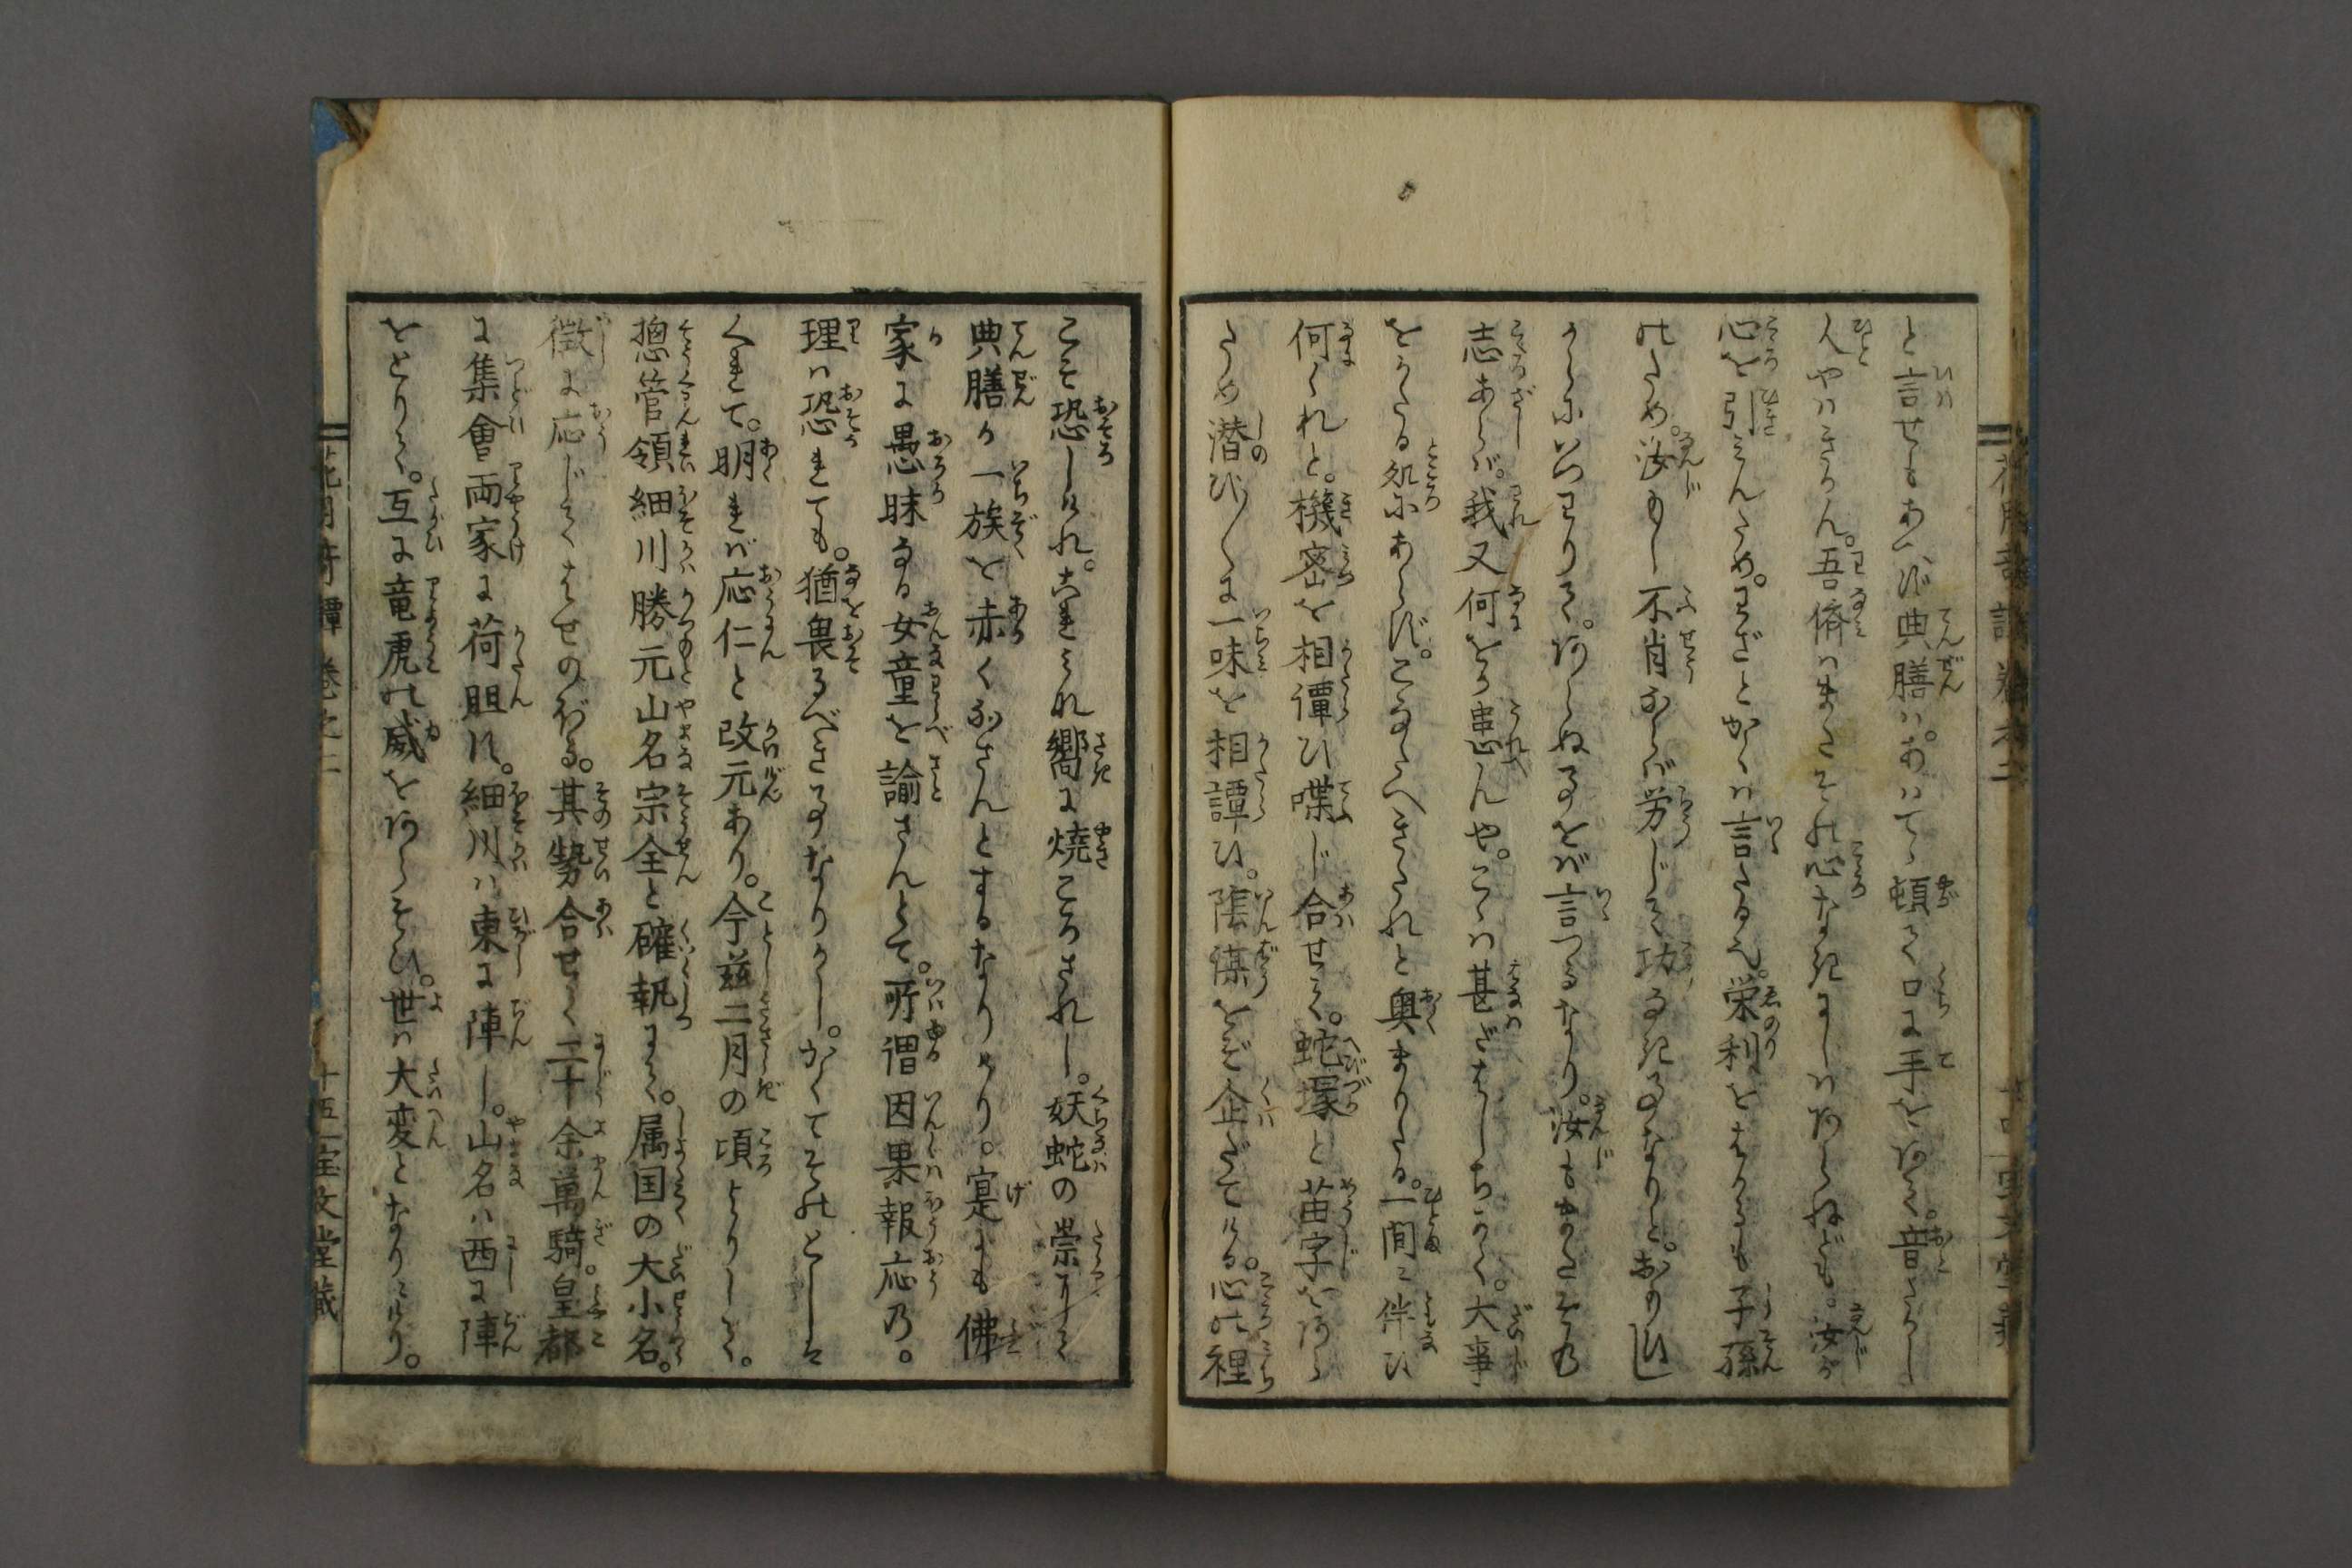 と言せもあへず典膳は。あはてゝ頓て口に手をあて。音たかし
人やはきかん。吾儕はまさそれ心なきにしはあらねども。汝が
心を引みんため。わざとかくは言たるぞ。栄利をはかるも子孫
のため。汝もし不肖ならば労して功なき事なりと。おもひ
からにいつわりて。あらぬ事をば言つるなり。汝もまたその
志あらば。我又何をか患んや。こゝは甚だはしちかく。大事
をかたる処にあらず。こなたへきたれと奥まりたる。一間に伴ひ
何くれと。機密を相譚ひ喋じ合せて。蛇塚と苗字をあら
ため潜び〳〵に一味を相譚ひ。陰謀をぞ企だてける。心の裡
こそ恐しけれ。これみな嚮に焼ころされし。妖蛇の祟りにて
典膳が一族を赤くなさんとするなりけり。寔にも佛
家に愚昧なる女童を諭さんとて。所謂因果報応の。
理は恐れても。猶畏るべき事なりかし。かくてそのとしは
くれて。明れば応仁と改元あり。今茲二月の頃よりして。
摠管領細川勝元山名宗全と確執にて。属国の大小名。
徴に応じてはせのぼる。其勢合せて二十余萬騎。皇都
に集會両家に荷胆に。細川は東に陣し。山名は西に陣
をとりて。互に竜虎の威をあらそひ。世は大変となりにけり。
花月奇譚巻之二
十五 宝文堂蔵